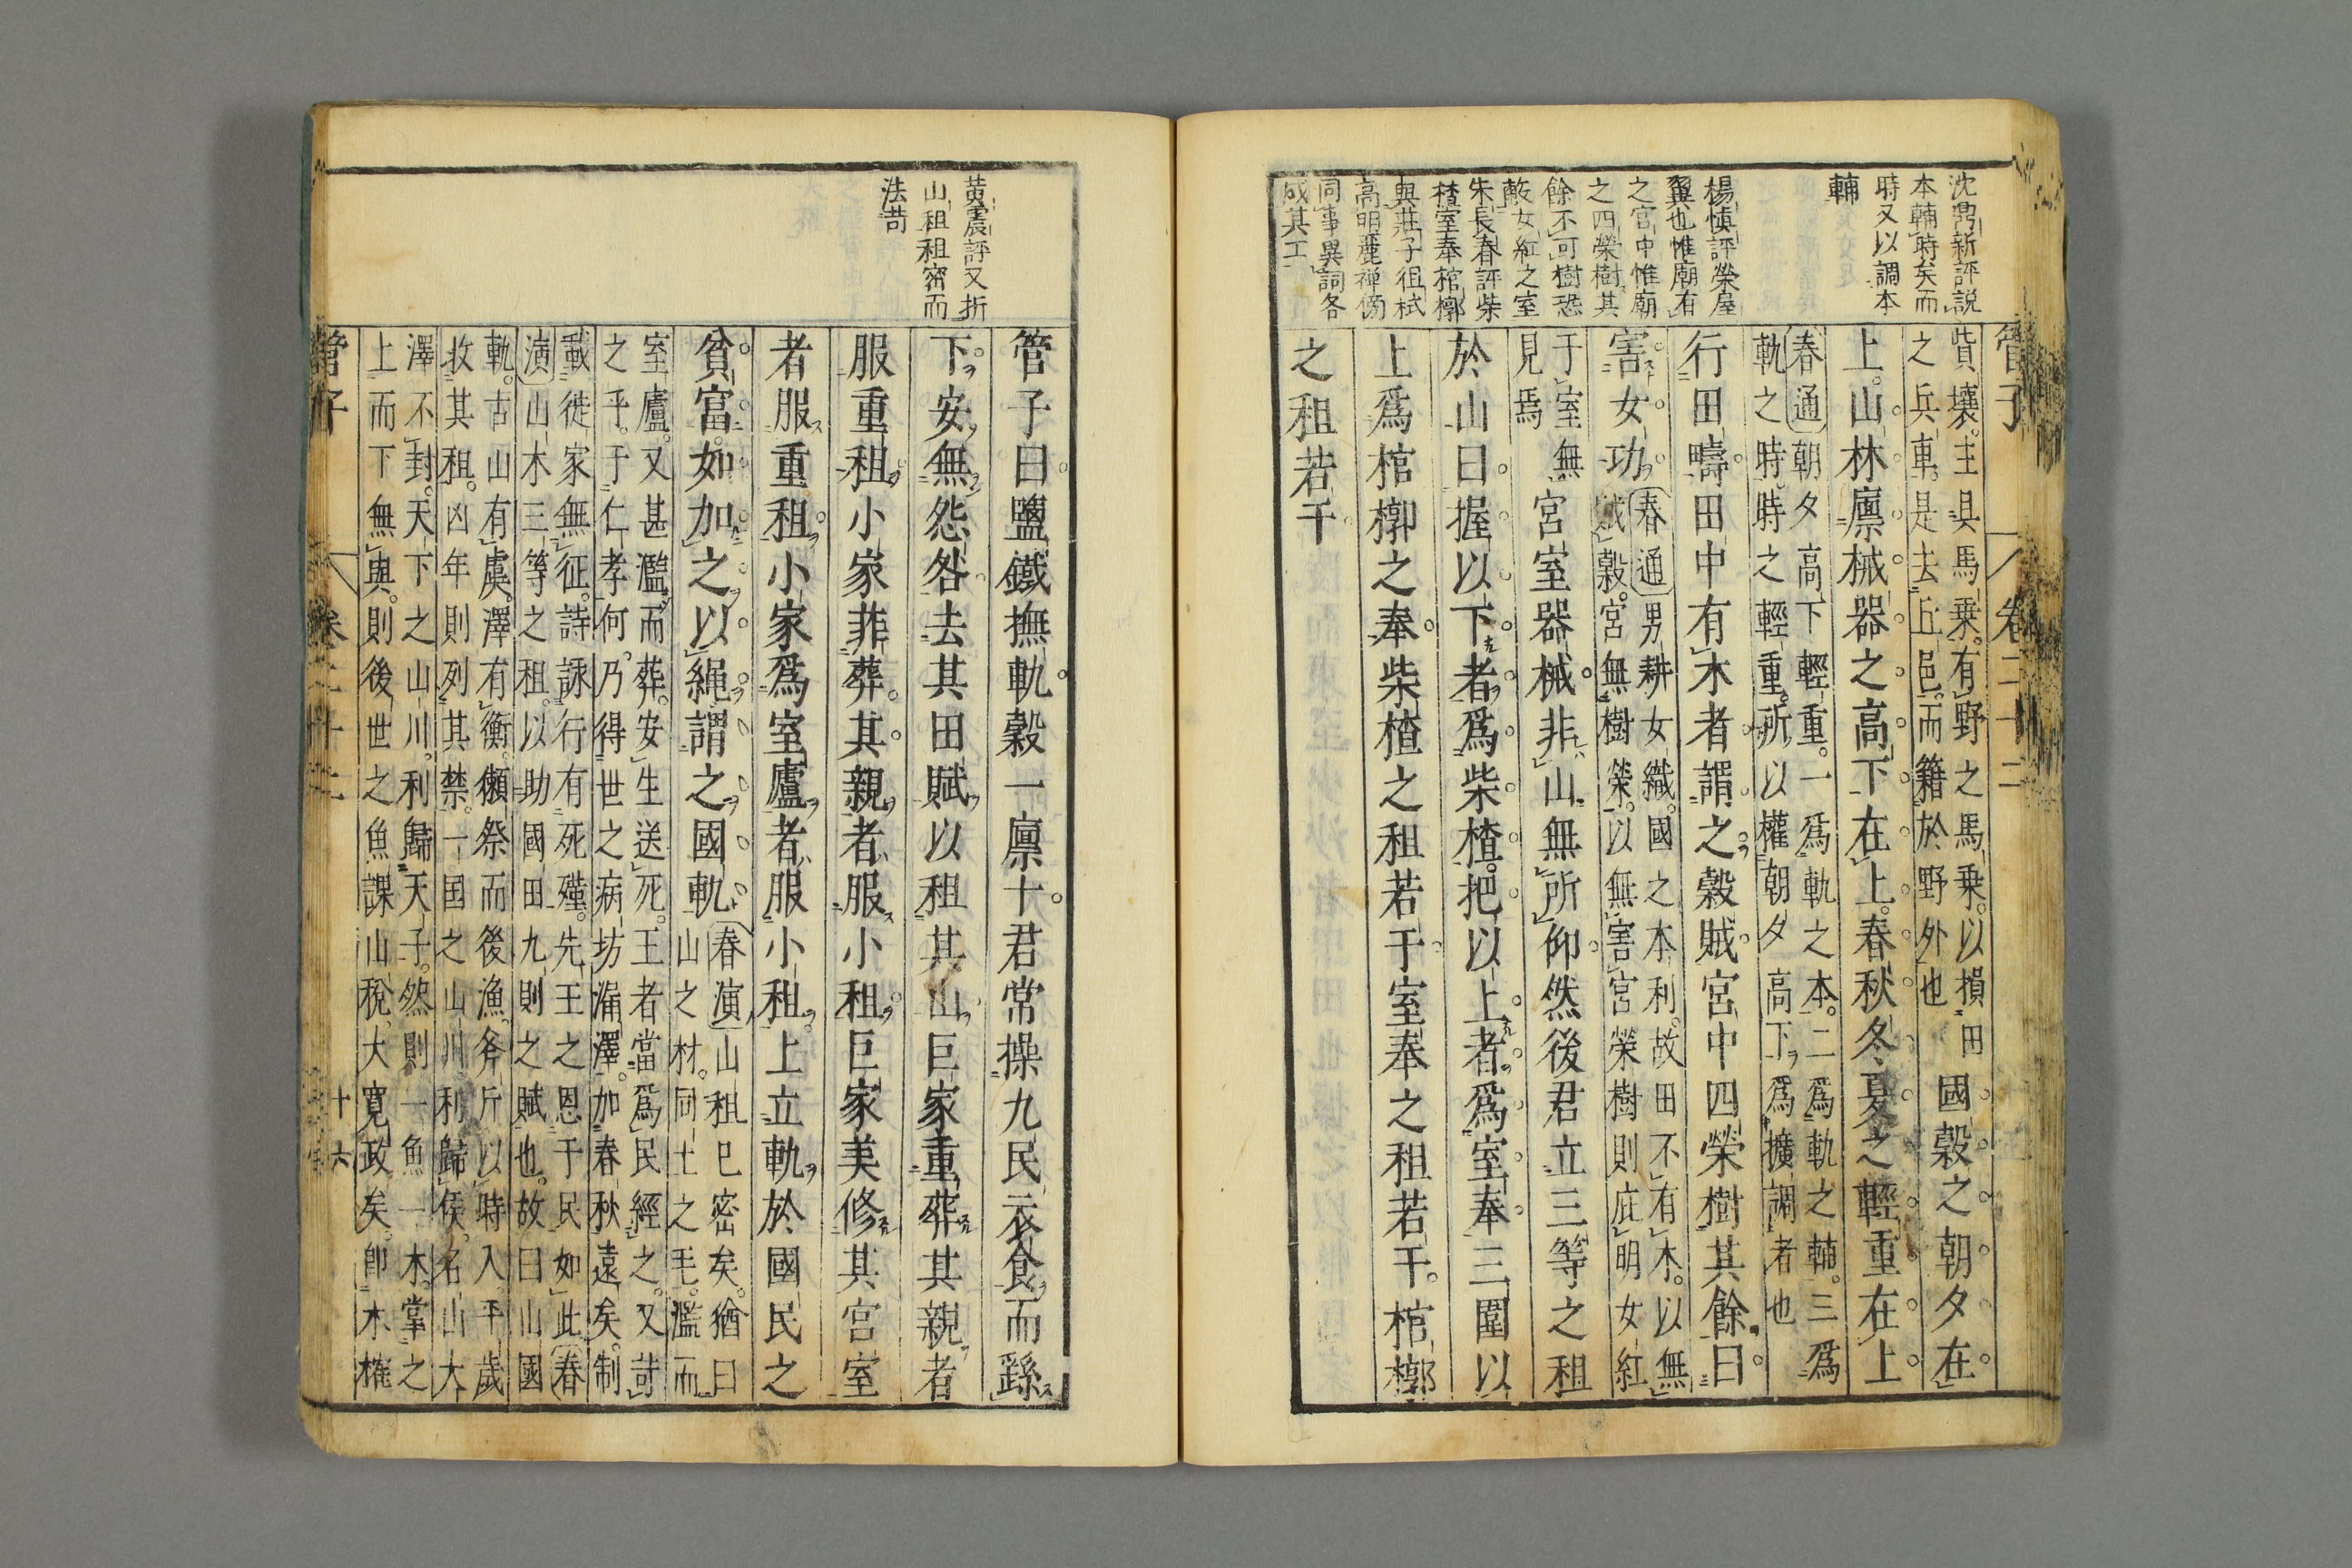 沈鼎新評説
本輔時矣而
時又以調本
輔
楊愼評榮屋
翼也惟廟有
之宮中惟廟
之四榮樹其
餘不可樹恐
敗女紅之室
朱長春評柴
楂室奉棺槨
與莊子徂栻
高明麗禅傍
同事異詞各
成其工
管子
卷二十二
貲壞主具馬乗有野之馬乗以損田
之兵車是去丘邑而籍於野外也
國穀之朝夕在
上山林廪械器之高下在上春秋冬夏之輕重在上
春通朝夕高下輕重一爲軌之本二爲軌之輔三爲
軌之時時之輕重所以權朝夕高下爲擴調者也
行田疇田中有木者謂之穀賊宮中四榮樹其餘曰
害女功
春通男耕女織國之本利故田不有木以無
賊穀宮無樹榮以無害宮榮樹則庇明女紅
于室無
見焉
宮室器械非山無所仰然後君立三等之租
於山曰握以下者爲柴楂把以上者爲室奉三圍以
上爲棺槨之奉柴楂之租若干室奉之租若干棺槨
之租若干
黄震評又折
山租租密而
法苛
管子曰鹽鐵撫軌穀一廪十君常操九民衣食而繇
下安無怨咎去其田賦以租其山巨家重葬其親者
服重租小家菲葬其親者服小租巨家美修其宮室
者服重租小家爲室廬者服小租上立軌於國民之
貧富如加之以繩謂之國軌
春演山租已密矣猶曰
山之材同土之毛濫而
室廬又甚濫而葬安生送死王者當爲民經之又苛
之乎于仁孝何乃得世之病坊漏澤加春秋遠矣制
載徙家無征詩詠行有死殣先王之恩于民如此春
演山木三等之租以助國田九則之賦也故曰山國
軌古山有虞澤有衡獺祭而後漁斧斤以時入平歳
收其租凶年則列其禁一国之山川利歸侯名山大
澤不封天下之山川利歸天子然則一魚一木掌之
上而下無與則後世之魚課山税大寛政矣卽木榷
管子
卷二十二
十六